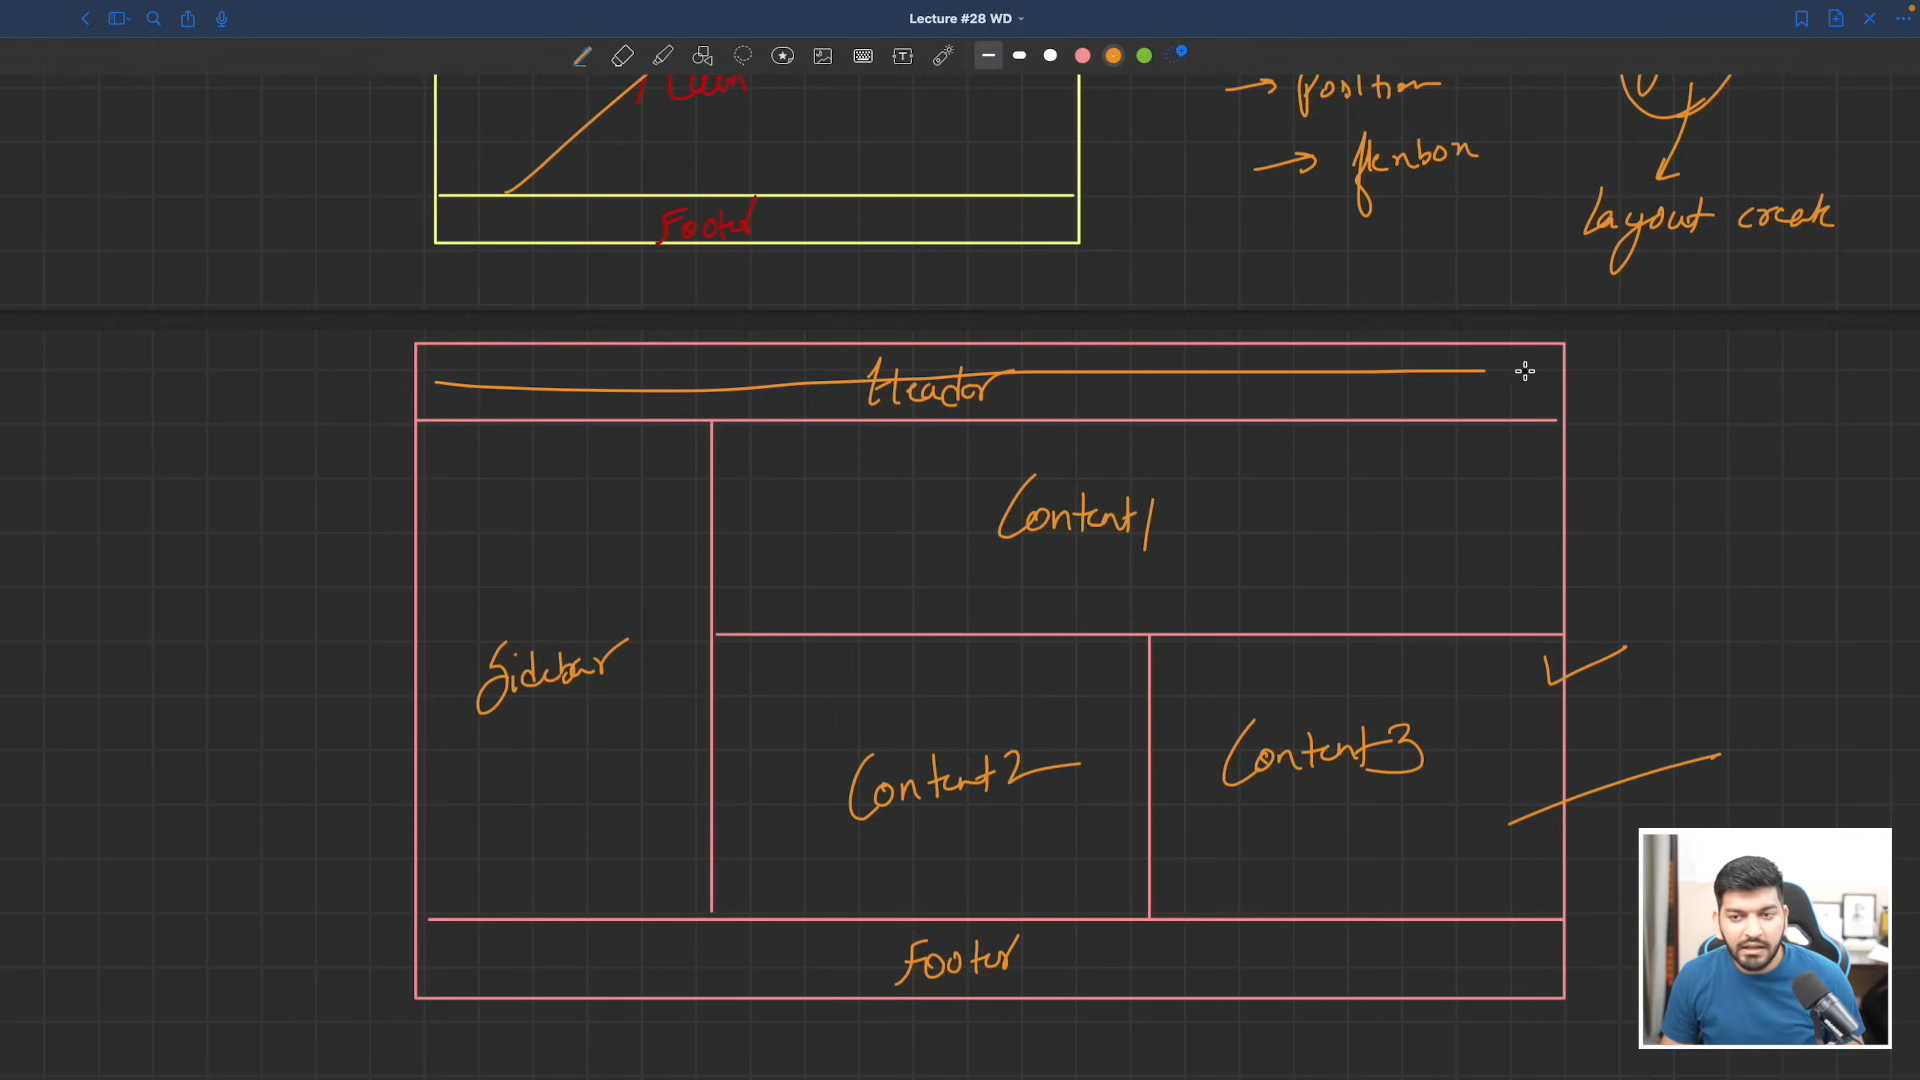 Lecture #28 WD
T
→ position
→ flexbox
Layout create
Footer
Header
Content1
Sidebar
Content2
Content3
Footer